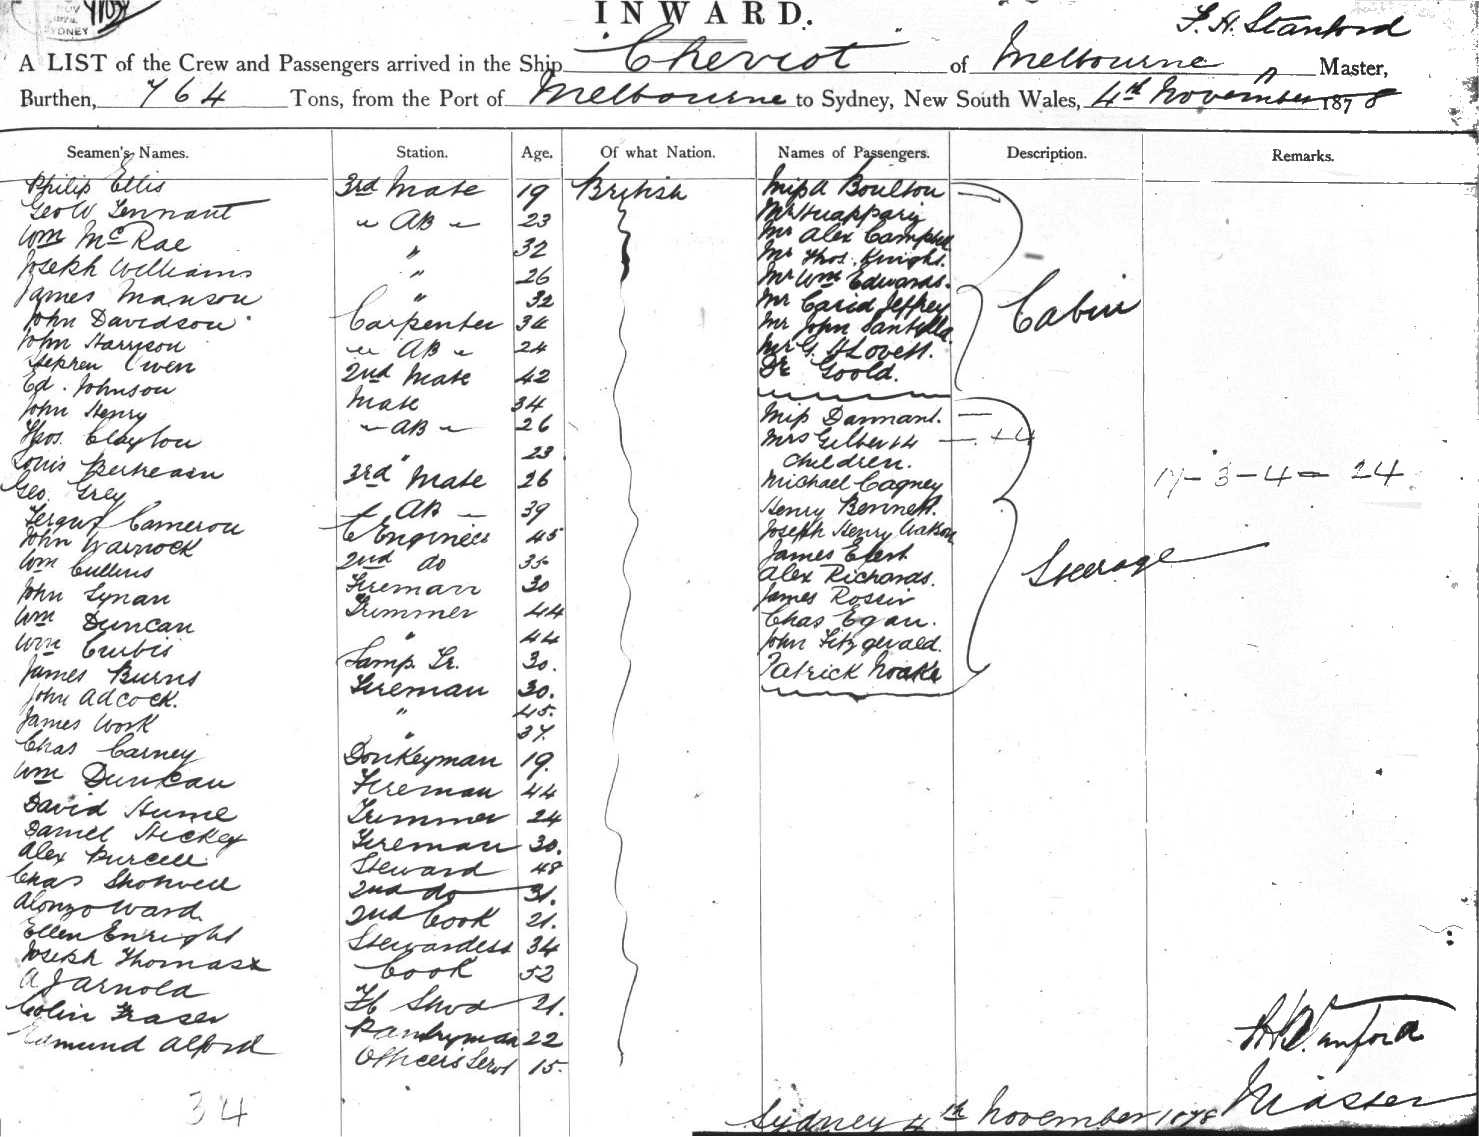 INWARD.
F. H. Stanford
A LIST of the Crew and Passengers arrived in the Ship "Cheviot" of Melbourne Master,
Burthen, 764 Tons, from the Port of Melbourne to Sydney, New South Wales, 4th November 1878
Seamen's Names. Station. Age. Of what Nation. Names of Passengers. Description. Remarks.
Philip Ellis 3rd Mate 19 British Miss A Boulton
Geo W Tennant AB 23 Mr
Wm McRae " 32 Mr Alex Campbell
Joseph Williams " 26 Mr Thos. Knight.
James Manson " 32 Mr Wm Edwards.
John Davidson Carpenter 34 Mr Jeffrey
John Harrison AB 24 Mr John
Stephen Owen 2nd Mate 42 Mr G. H Lovett.
Ed. Johnson Mate 34 Dr Goold.
Cabin
John Henry AB 26 Miss Dannant.
Thos. Clayton " 23 Mrs Gilbert & 4 + 4
children.
Louis 3rd Mate 26 Michael Cagney
Geo. Grey AB 39 Henry Bennett.
Fergus Cameron C Engineer 45 Joseph Henry Watson
John Warnock 2nd do 35 James
Wm Cullens Fireman 30 Alex Richards.
John Lynan Trimmer 44 James
Wm Duncan " 44 Chas Egan.
Wm Lamp Tr. 30. John Fitzgerald.
James Burns Fireman 30. Patrick Noake
Steerage
17-3-4 = 24
John Adcock. " 45.
James Work " 37.
Chas Carney Donkeyman 19.
Wm Duncan Fireman 44
David Hume Trimmer 24
Daniel Hickey Fireman 30.
Alex Purcell Steward 48
Chas Shotwell 2nd do 31.
Alonzo Ward. 2nd Cook 21.
Ellen Enright Stewardess 34
Joseph Thomas Cook 52
A J Arnold 21.
Colin Fraser Pantryman 22
Edmund Alford Officers Servt 15.
34
F H Stanford
Master
Sydney 4th November 1878